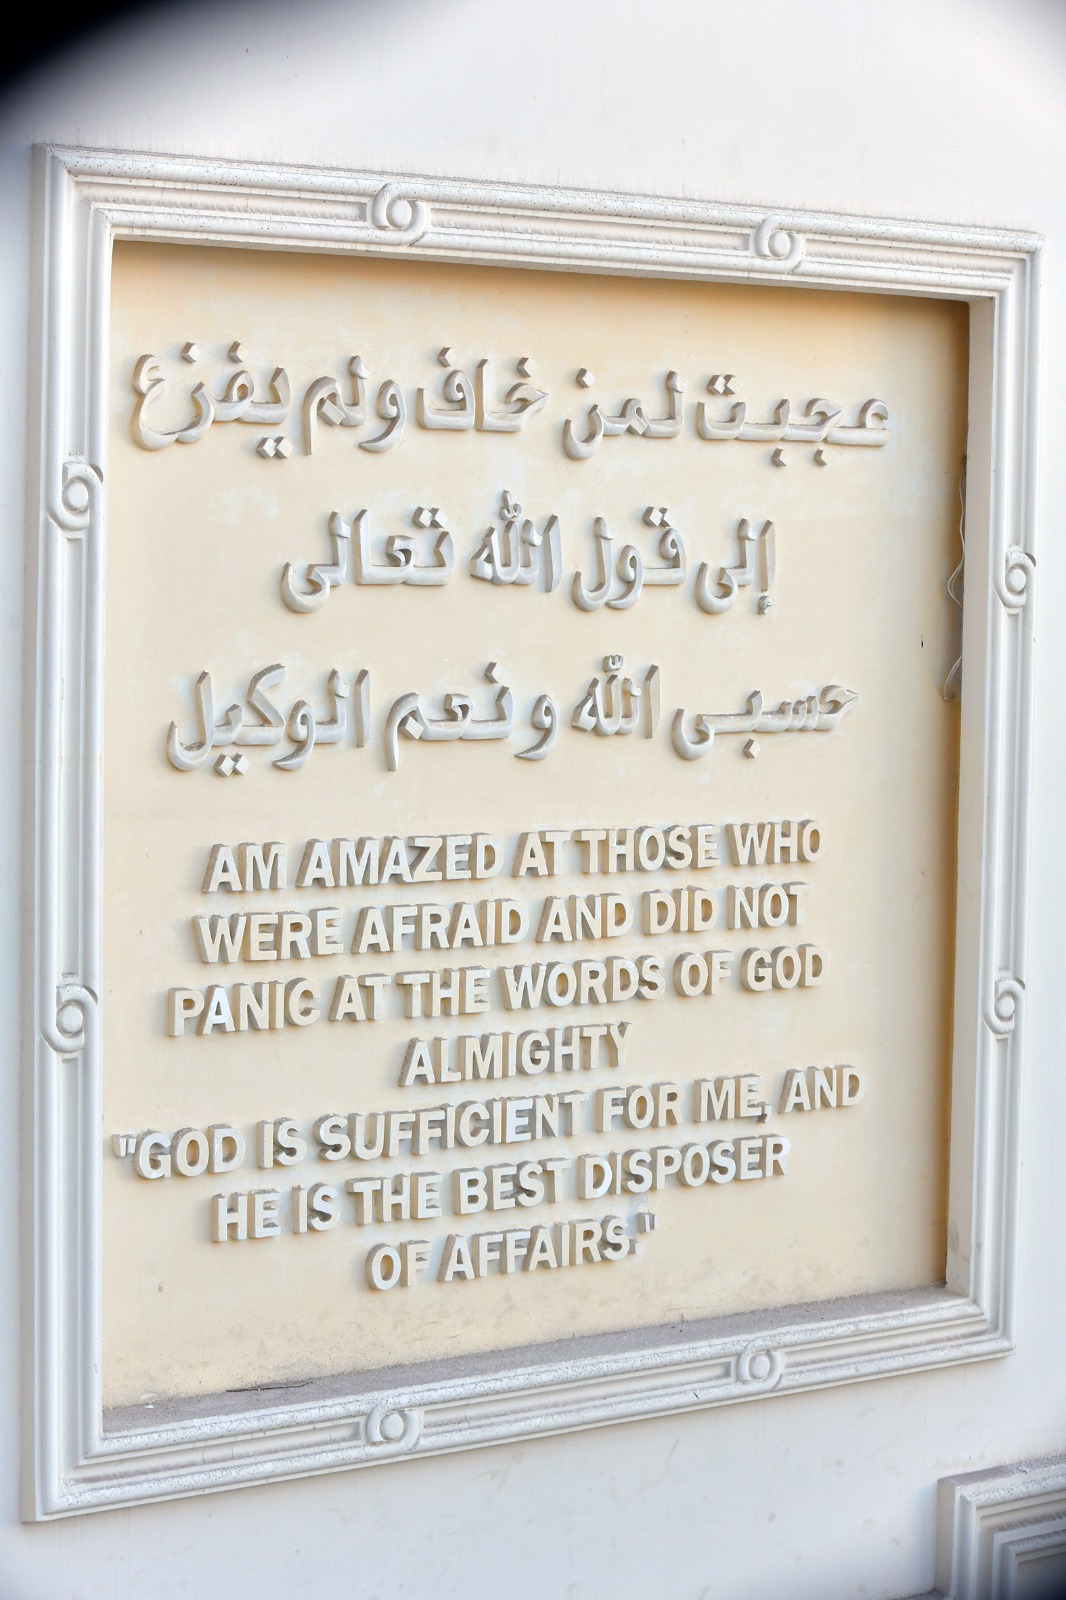 عجبت لمن خاف ولم يفزع
إلى قول الله تعالى
حسبى الله ونعم الوكيل
AM AMAZED AT THOSE WHO
WERE AFRAID AND DID NOT
PANIC AT THE WORDS OF GOD
ALMIGHTY
"GOD IS SUFFICIENT FOR ME, AND
HE IS THE BEST DISPOSER
OF AFFAIRS."